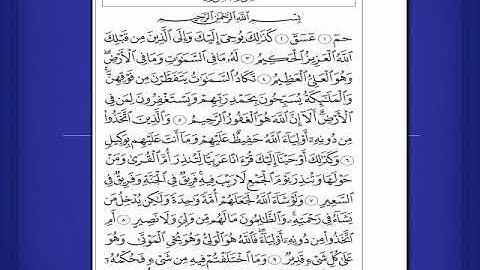 بِسْمِ اللَّهِ الرَّحْمَٰنِ الرَّحِيمِ
حمٓ ١ عٓسٓقٓ ٢ كَذَٰلِكَ يُوحِىٓ إِلَيْكَ وَإِلَى ٱلَّذِينَ مِن قَبْلِكَ
ٱللَّهُ ٱلْعَزِيزُ ٱلْحَكِيمُ ٣ لَهُۥ مَا فِى ٱلسَّمَٰوَٰتِ وَمَا فِى ٱلْأَرْضِ ۖ
وَهُوَ ٱلْعَلِىُّ ٱلْعَظِيمُ ٤ تَكَادُ ٱلسَّمَٰوَٰتُ يَتَفَطَّرْنَ مِن فَوْقِهِنَّ ۚ
وَٱلْمَلَٰٓئِكَةُ يُسَبِّحُونَ بِحَمْدِ رَبِّهِمْ وَيَسْتَغْفِرُونَ لِمَن فِى
ٱلْأَرْضِ ۗ أَلَآ إِنَّ ٱللَّهَ هُوَ ٱلْغَفُورُ ٱلرَّحِيمُ ٥ وَٱلَّذِينَ ٱتَّخَذُوا۟
مِن دُونِهِۦٓ أَوْلِيَآءَ ٱللَّهُ حَفِيظٌ عَلَيْهِمْ وَمَآ أَنتَ عَلَيْهِم بِوَكِيلٍ
٦ وَكَذَٰلِكَ أَوْحَيْنَآ إِلَيْكَ قُرْءَانًا عَرَبِيًّا لِّتُنذِرَ أُمَّ ٱلْقُرَىٰ وَمَنْ
حَوْلَهَا وَتُنذِرَ يَوْمَ ٱلْجَمْعِ لَا رَيْبَ فِيهِ ۚ فَرِيقٌ فِى ٱلْجَنَّةِ وَفَرِيقٌ فِى
ٱلسَّعِيرِ ٧ وَلَوْ شَآءَ ٱللَّهُ لَجَعَلَهُمْ أُمَّةً وَٰحِدَةً وَلَٰكِن يُدْخِلُ مَن
يَشَآءُ فِى رَحْمَتِهِۦ ۚ وَٱلظَّٰلِمُونَ مَا لَهُم مِّن وَلِىٍّ وَلَا نَصِيرٍ ٨ أَمِ
ٱتَّخَذُوا۟ مِن دُونِهِۦٓ أَوْلِيَآءَ ۖ فَٱللَّهُ هُوَ ٱلْوَلِىُّ وَهُوَ يُحْىِ ٱلْمَوْتَىٰ وَهُوَ
عَلَىٰ كُلِّ شَىْءٍ قَدِيرٌ ٩ وَمَا ٱخْتَلَفْتُمْ فِيهِ مِن شَىْءٍ فَحُكْمُهُۥٓ